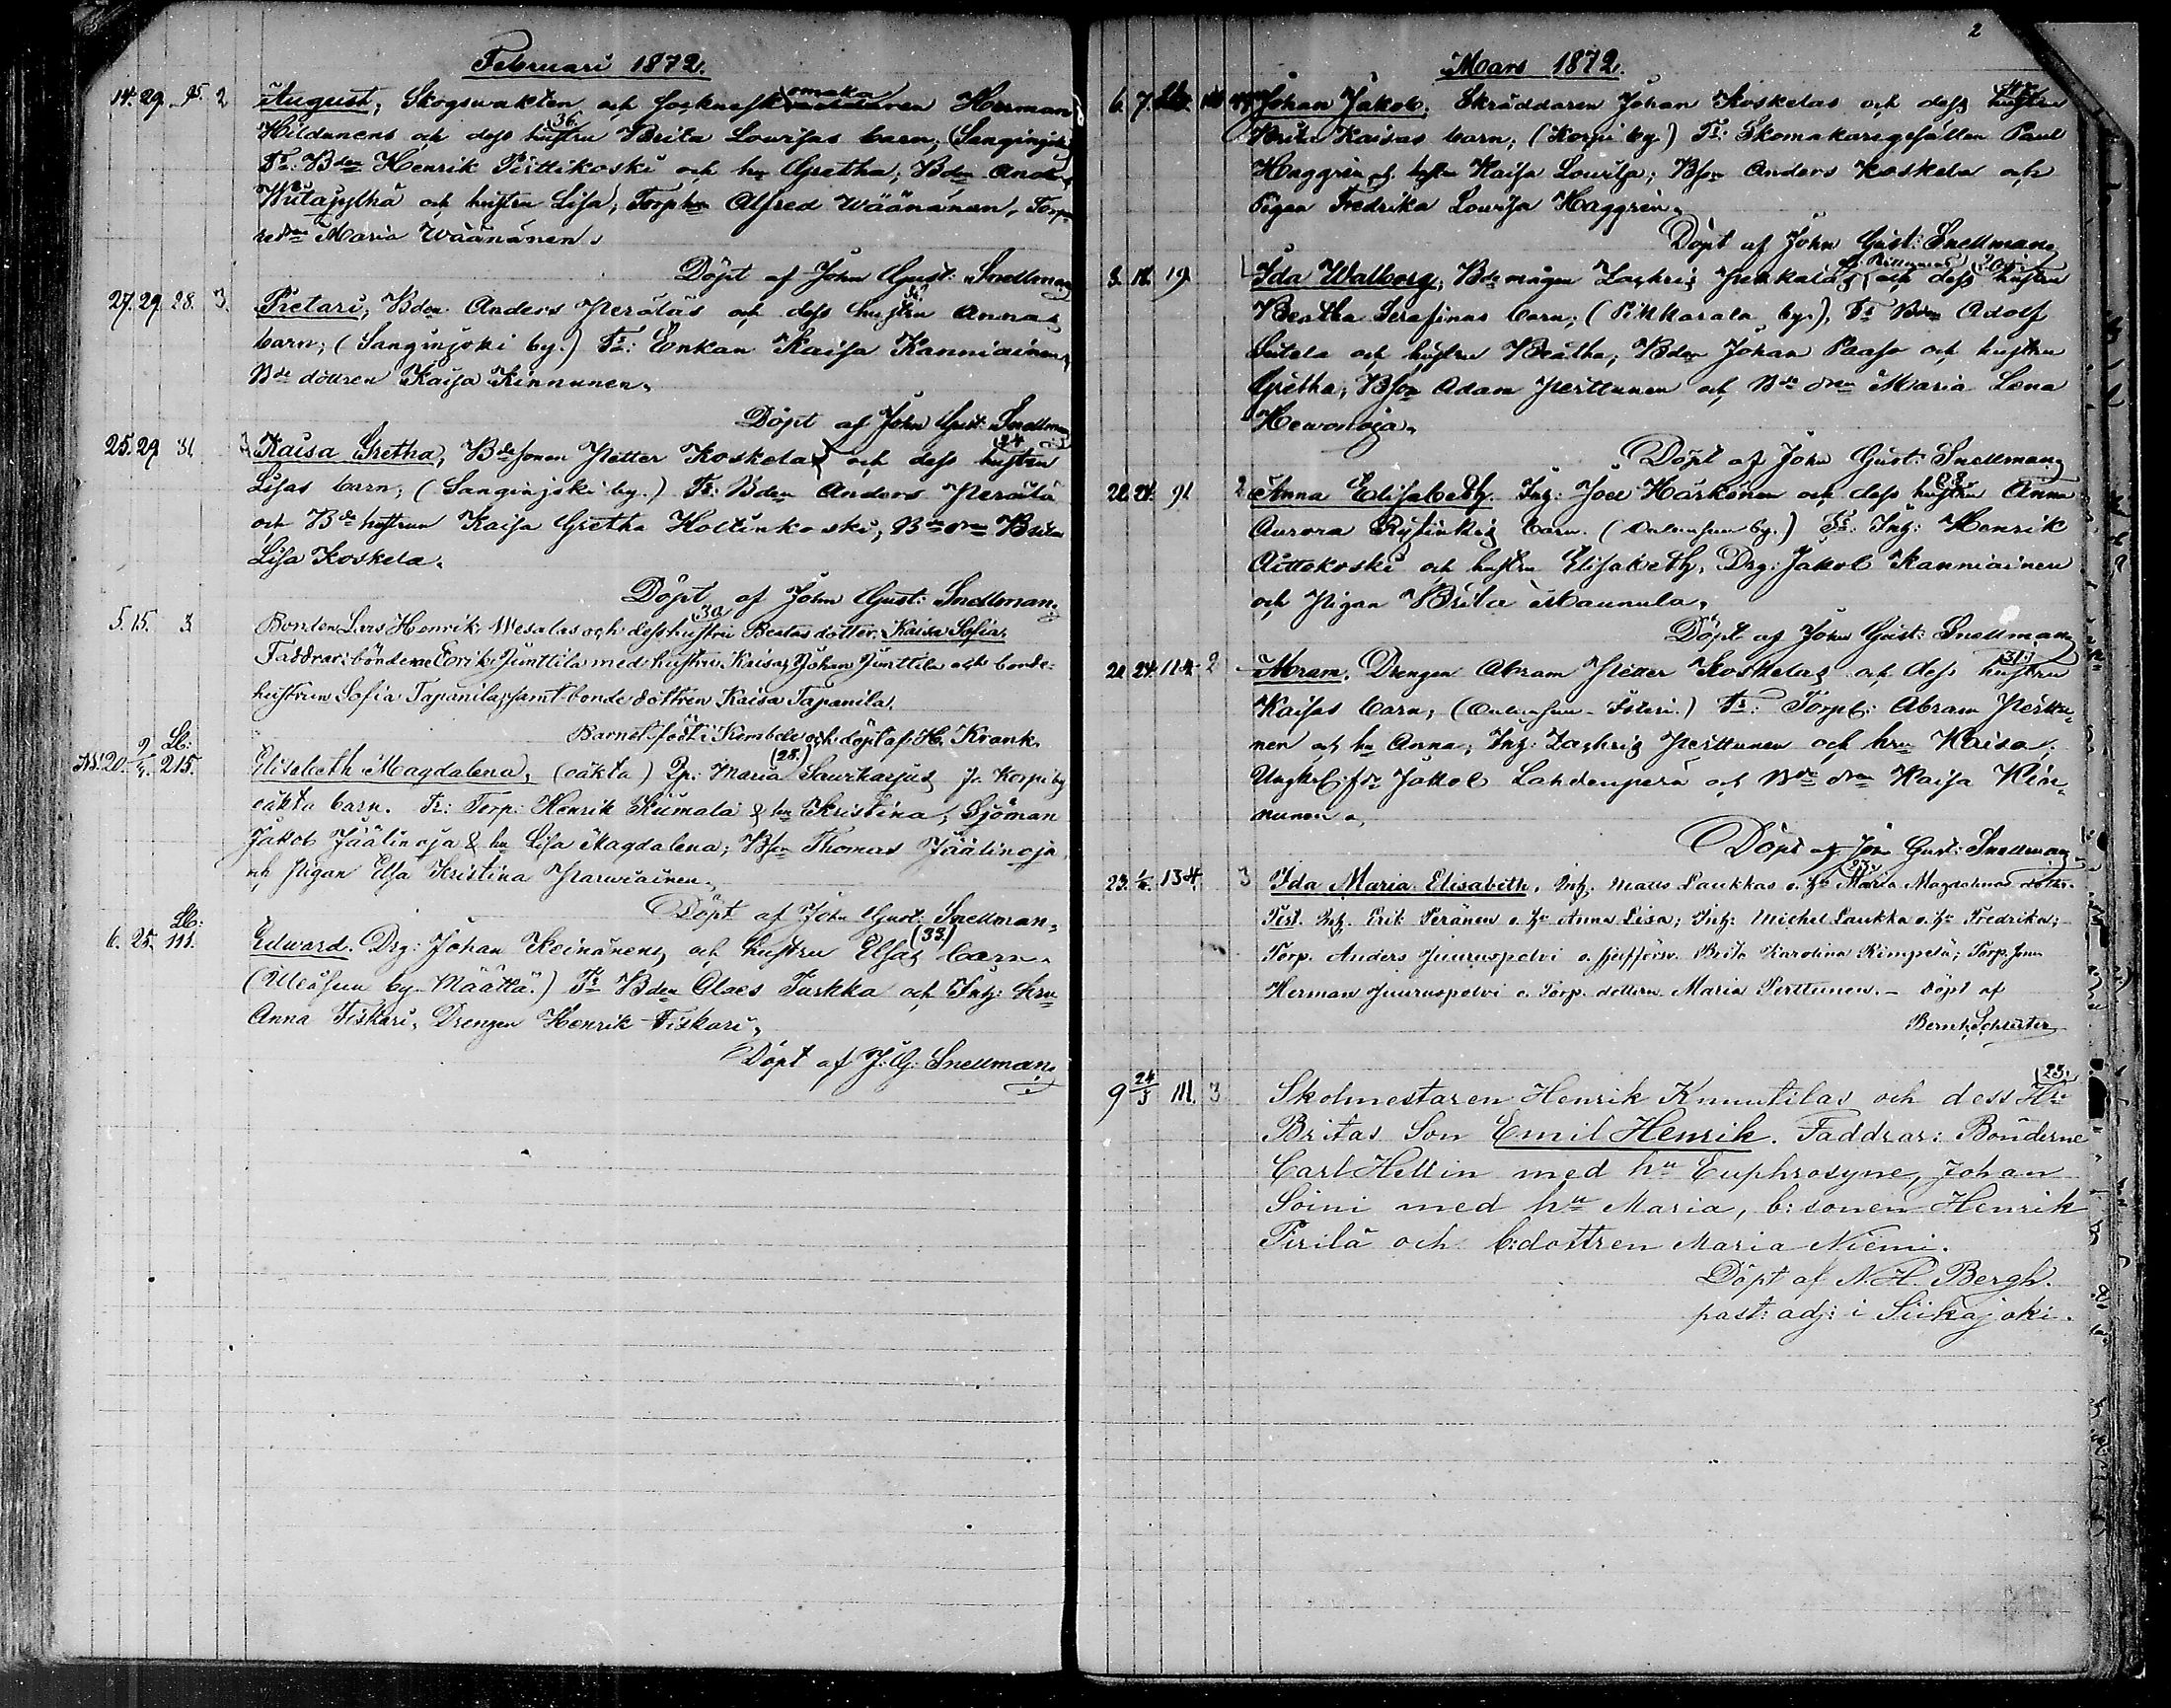 Februari 1872.
14. 29. 95. 2 August, Skogswakten och Herman
Hildunens och dess hustru (36.) Brita Lowisas barn, (Sanginjoki
Fr: Bden Henrik Pirttikoski och hu Gretha; Bden Anders
och hustru Lisa, Alfred Wäänänen,
Maria Wäänänen.
Döpt af John Gust: Snellman
27. 29. 28. 3. Pietari, Bden Anders Perälas och dess hustru Annas
barn; (Sanginjoki by.) Fr: Enkan Kaisa Kanniainen,
Bde dottren Kaisa Kinnunen.
Döpt af John Gust: Snellman
25. 29 31 3 Kaisa Gretha, Bdesonen Petter Koskelas och dess hustru (24
Lisas barn; (Sanginjoki by.) Fr: Bden Anders Perälä
och Bde hustrun Kaisa Gretha Holtinkoski; Bde drn Brita
Lisa Koskela.
Döpt af John Gust: Snellman.
5. 15. 3. Bonden Lars Henrik Wesalas och dess hustru 30 Beatas dotter Kaisa Sofia.
Faddrar: bönderne Erik Junttila med hustru Kaisa, Johan Junttila och bonde-
hustrun Sofia Tapanila, samt bonde dottren Kaisa Tapanila.
Barnet födt i Kembele och döpt af H. Krank.
N. 20. 2/4. Lb: 215. Elisabeth Magdalena, (oäkta) Maria (28.) Saurkarjus fr Korpi by
oäkta barn. Fr: Torp: Henrik Kumala & hu Kristina, Sjöman
Jakob Jäälinoja & hu Lisa Magdalena; Bson Thomas Jäälinoja
och Pigan Elsa Kristina Parwiainen.
Döpt af John Gust: Snellman.
6. 25. Lb: 111. Edward. Drg: Johan Keinänens och hustru Elsas (33) barn.
(Uleåsuu by Määttä.) Fr Bden Claes Turkka och Inh: hru
Anna Fiskari, Drengen Henrik Fiskari.
Döpt af J: G: Snellman.
2
Mars 1872.
6. 7. Johan Jakob, Skräddaren Johan Koskelas och dess hustru
Brita Kaisas barn, (Korpi by) Fr: Skomakaregesällen Paul
Haggrén och hustru Kaisa Lowisa; Bson Anders Koskela och
Pigan Fredrika Lowisa Haggrén.
Döpt af John Gust: Snellman.
8. 18. 19. Ida Walborg, Bdemågen Zachris och dess hustru
Beatha Serafinas barn; (Pikkarala by.), Fr Bden Adolf
Sutela och hustru Beatha, Bden Johan Paaso och hustru
Gretha, Bson Adam Perttunen och Bde drn Maria Lena
Hewonoja.
Döpt af John Gust: Snellman
22. 24. 91 2 Anna Elisabeth. Inh: Joel Härkönen och dess hustru Anna
Aurora barn. (Oulunsuu by.) Fr. Inh: Henrik
Aittokoski och hustru Elisabeth, Drg: Jakob Kanniainen
och Pigan Brita Maunula.
Döpt af John Gust: Snellman
20. 24. 114. 2 Abram. Drengen Abram Petter Koskelas och dess hustru (31.)
Kaisas barn, (Oulunsuu Fr: Torp: Abram Perttu-
nen och hu Anna, Inh: Zachris Perttunen och hru Kaisa.
Jakob Lahdenperä och Bde drn Kaisa Kin-
nunen.
Döpt af John Gust: Snellman
23. 134. 3 Ida Maria Elisabeth, Inh. Matts Laukkas o. hu 23 Maria Magdalenas dotter.
Test. Inh. Erik Peränen o. hu Anna Lisa; Inh: Michel Laukka o. hu Fredrika;
Torp. Anders Juuruspolvi o. Brita Karolina Kimpelä; Torp. sonen
Herman Juuruspolvi o. Torp. dottern Maria Perttunen. — Döpt af
Bernh. Schlüter
9 24/3 111. 3 Skolmestaren Henrik Knuutilas och dess Hu (23.)
Britas Son Emil Henrik. Faddrar: Bönderne
Carl Hellin med hu Euphrosyne, Johan
Soini med hu Maria, b: sonen Henrik
Pirilä och b: dottren Maria Niemi.
Döpt af N. H. Bergh.
past: adj: i Siikajoki.